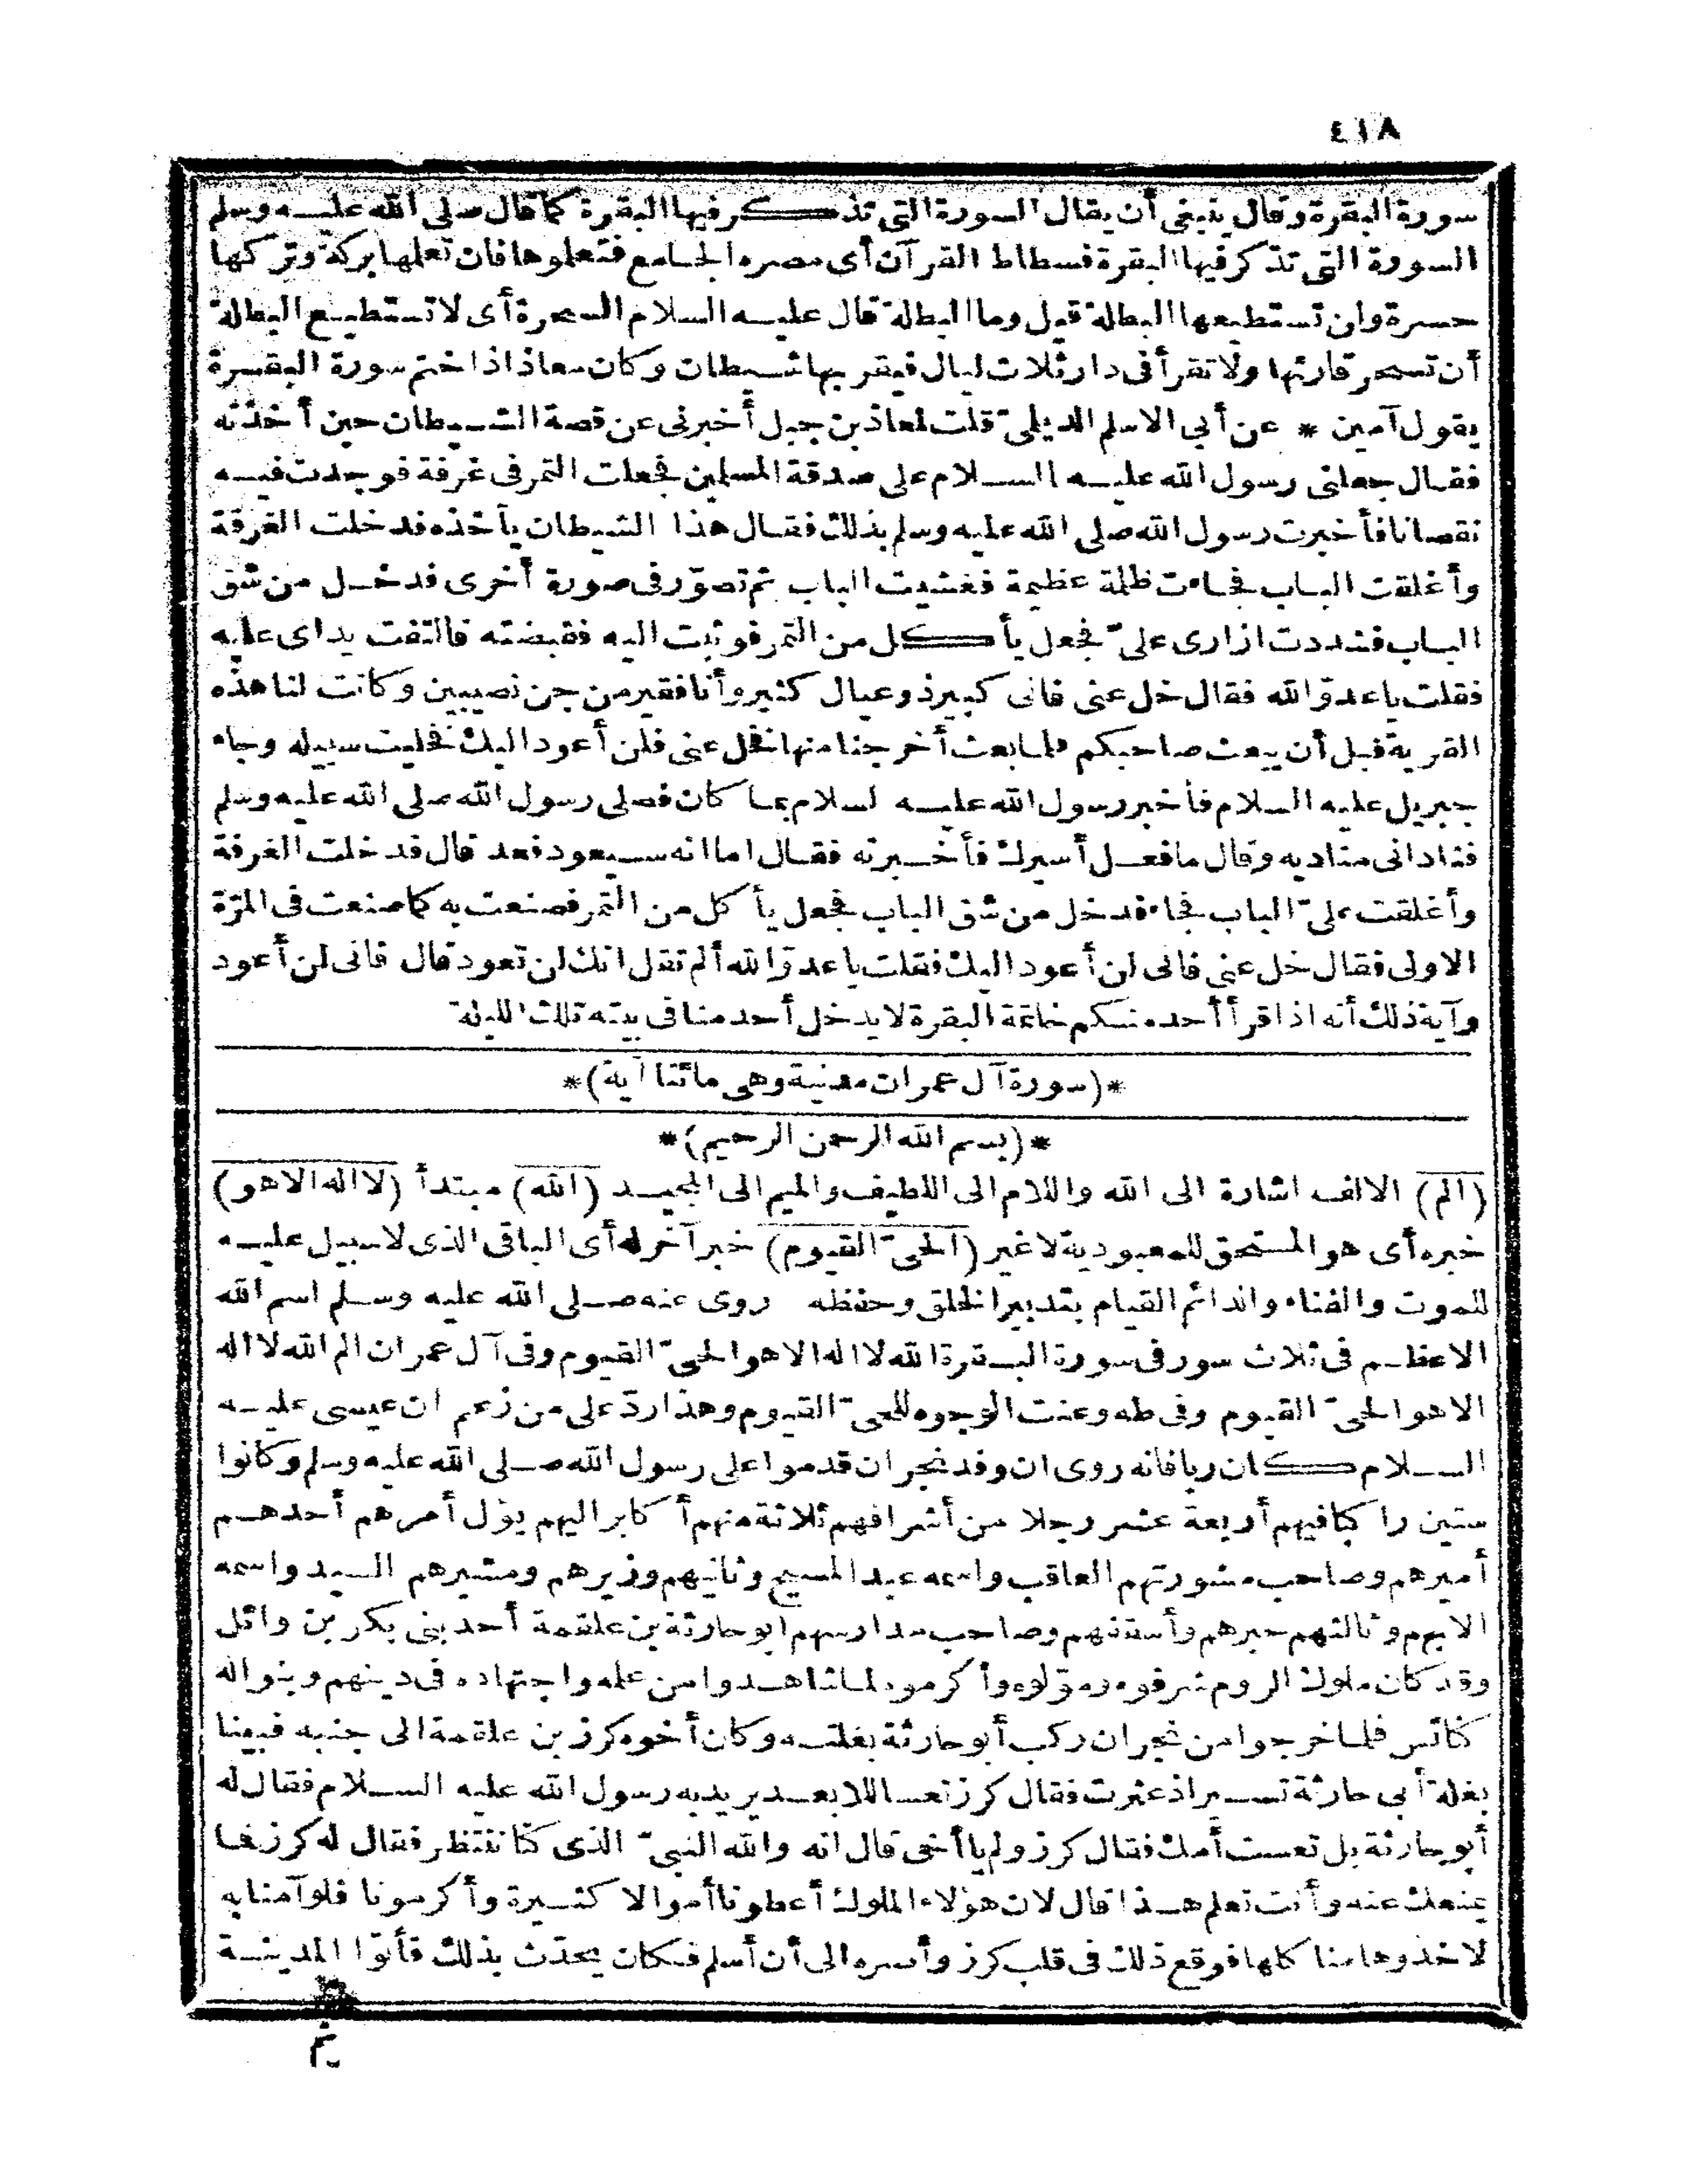 ٤١٨
سورة البقرة وقال ينبغى أن يقال السورة التى تذكر فيها البقرة كما قال صلى الله عليه وسلم
السورة التى تذكر فيها البقرة فسطاط القرآن أى مصره الجامع فتعلموها فان تعلمها بركة وتركها
حسرة ولن تستطيعها البطلة قيل وما البطلة قال عليه السلام السحرة أى لا تستطيع البطلة
أن تسحر قارئها ولا تقرأ فى دار ثلاث ليال فيقربها شيطان وكان معاذ اذا ختم سورة البقرة
يقول آمين * عن أبى الاسلم الديلى قلت لمعاذ بن جبل أخبرنى عن قصة الشيطان حين أخذته
فقال جعلنى رسول الله عليه السلام على صدقة المسلمين فجعلت التمر فى غرفة فوجدت فيه
نقصانا فأخبرت رسول الله صلى الله عليه وسلم بذلك فقال هذا الشيطان يأخذه فدخلت الغرفة
وأغلقت الباب فجاءت ظلمة عظيمة فغشيت الباب ثم تصوّر فى صورة أخرى فدخل من شق
الباب فشددت ازارى علىّ فجعل يأكل من التمر فوثبت اليه فقبضته فالتفت يداى عليه
فقلت يا عدوّ الله فقال خل عنى فانى كبير ذو عيال كثير وأنا فقير من جن نصيبين وكانت لنا هذه
القرية قبل أن يبعث صاحبكم فلما بعث أخرجنا منها فخل عنى فلن أعود اليك فخليت سبيله وجاء
جبريل عليه السلام فأخبر رسول الله عليه لسلام بما كان فصلى رسول الله صلى الله عليه وسلم
فنادانى مناديه وقال ما فعل أسيرك فأخبرته فقال اما انه سيعود فعد قال فدخلت الغرفة
وأغلقت علىّ الباب فجاء فدخل من شق الباب فجعل يأكل من التمر فصنعت به كما صنعت فى المرّة
الاولى فقال خل عنى فانى لن أعود اليك فقلت يا عدوّ الله ألم تقل انك لن تعود قال فانى لن أعود
وآية ذلك أنه اذا قرأ أحد منكم خاتمة البقرة لا يدخل أحد منا فى بيته تلك الليلة
*(سورة آل عمران مدنية وهى مائتا آية)*
*(بسم الله الرحمن الرحيم)*
(الم) الالف اشارة الى الله واللام الى اللطيف والميم الى المجيد (الله) مبتدأ (لا اله الا هو)
خبره أى هو المستحق للمعبودية لا غير (الحىّ القيوم) خبر آخر له أى الباقى الذى لا سبيل عليه
للموت والفناء والدائم القيام بتدبير الخلق وحفظه روى عنه صلى الله عليه وسلم اسم الله
الاعظم فى ثلاث سور فى سورة البقرة الله لا اله الا هو الحىّ القيوم وفى آل عمران الم الله لا اله
الا هو الحىّ القيوم وفى طه وعنت الوجوه للحىّ القيوم وهذا ردّ على من زعم ان عيسى عليه
السلام كان ربا فانه روى ان وفد نجران قدموا على رسول الله صلى الله عليه وسلم وكانوا
ستين راكبا فيهم أربعة عشر رجلا من أشرافهم ثلاثة منهم أكابر اليهم يؤل أمرهم أحدهم
أميرهم وصاحب مشورتهم العاقب واسمه عبد المسيح وثانيهم وزيرهم ومشيرهم السيد واسمه
الايهم وثالثهم حبرهم وأسقفهم وصاحب مدارسهم ابو حارثة بن علقمة أحد بنى بكر بن وائل
وقد كان ملوك الروم شرفوه وموّلوه وأكرموه لما شاهدوا من علمه واجتهاده فى دينهم وبنوا له
كنائس فلما خرجوا من نجران ركب أبو حارثة بغلته وكان أخوه كرز بن علقمة الى جنبه فبينا
بغلة أبى حارثة تسير اذ عثرت فقال كرز تعسا للابعد يريد به رسول الله عليه السلام فقال له
أبو حارثة بل تعست أمك فقال كرز ولم يا أخى قال انه والله النبىّ الذى كنا ننتظر فقال له كرز فما
يمنعك عنه وأنت تعلم هذا قال لان هؤلاء الملوك أعطونا أموالا كثيرة وأكرمونا فلو آمنا به
لاخذوها منا كلها فوقع ذلك فى قلب كرز وأسره الى أن أسلم فكان يحدّث بذلك فأتوا المدينة